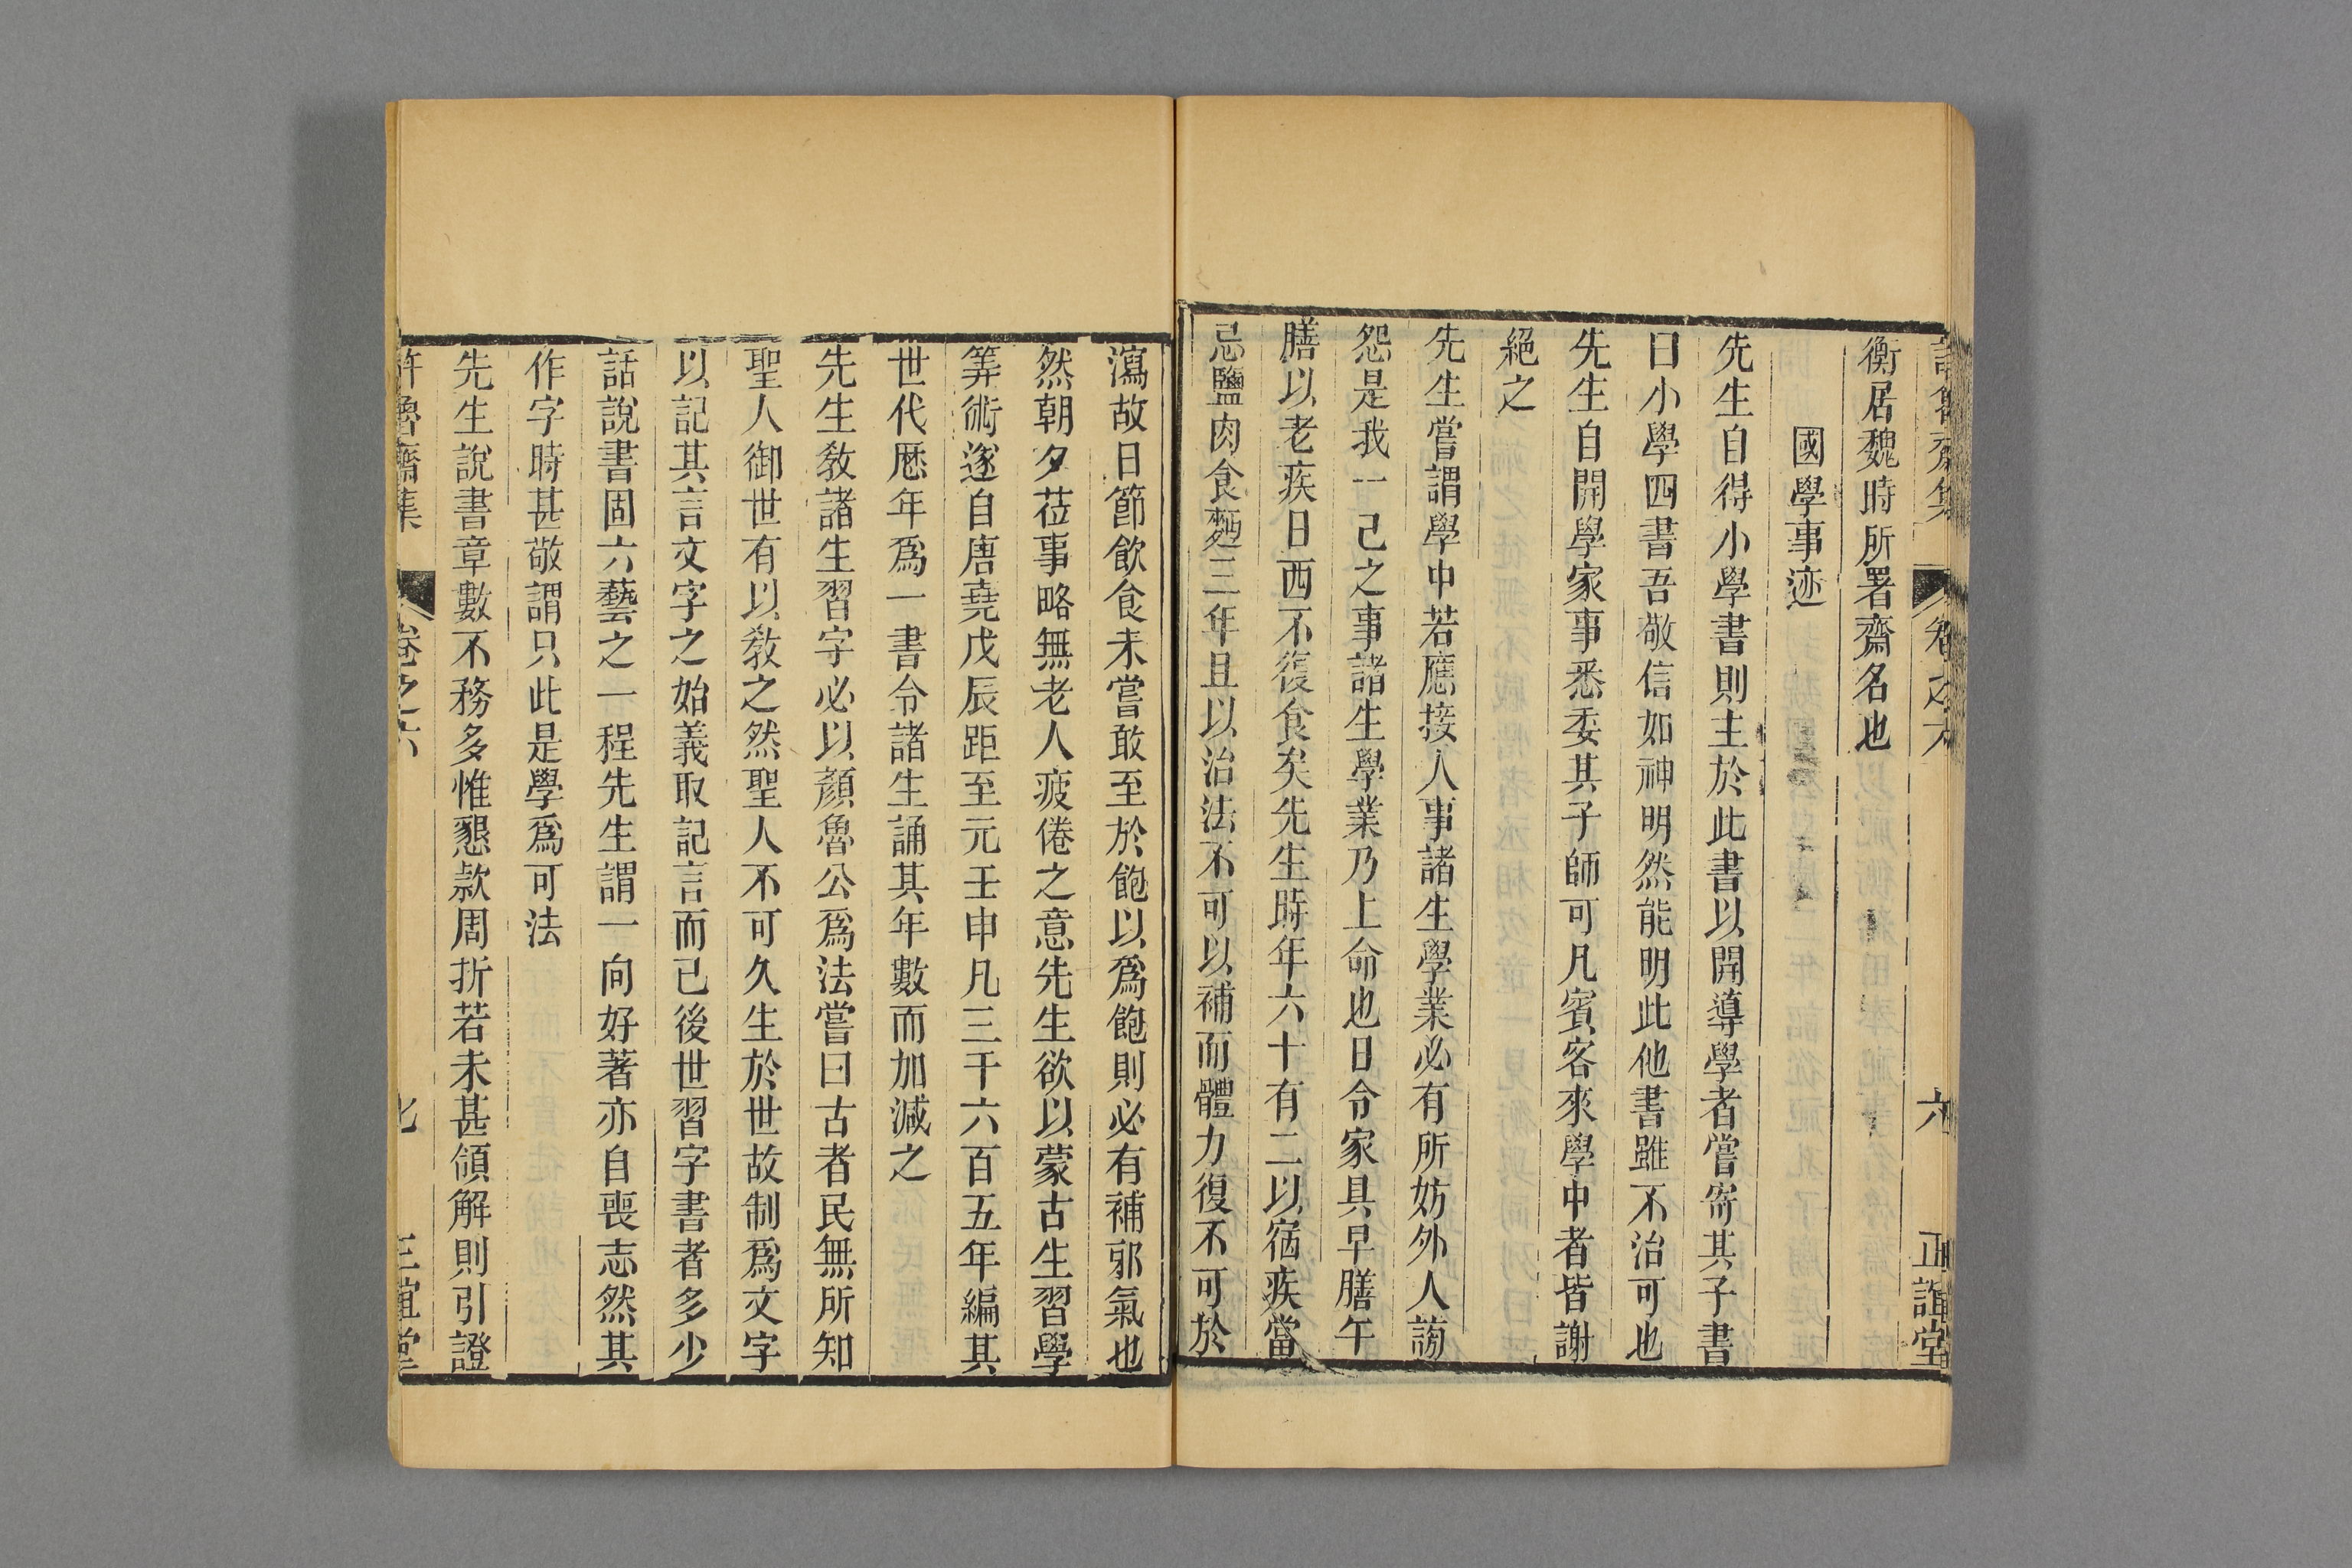 許魯齋集 卷之六 六 正誼堂
衡居魏時所署齋名也
國學事迹
先生自得小學書則主於此書以開導學者嘗寄其子書
曰小學四書吾敬信如神明然能明此他書雖不治可也
先生自開學家事悉委其子師可凡賓客來學中者皆謝
絕之
先生嘗謂學中若應接人事諸生學業必有所妨外人謗
怨是我一己之事諸生學業乃上命也日令家具早膳午
膳以老疾日西不復食矣先生時年六十有二以宿疾當
忌鹽肉食麪三年且以治法不可以補而體力復不可於
瀉故日節飲食未嘗敢至於飽以爲飽則必有補邪氣也
然朝夕莅事略無老人疲倦之意先生欲以蒙古生習學
筭術遂自唐堯戊辰距至元壬申凡三千六百五年編其
世代歷年爲一書令諸生誦其年數而加減之
先生敎諸生習字必以顏魯公爲法嘗曰古者民無所知
聖人御世有以敎之然聖人不可久生於世故制爲文字
以記其言文字之始義取記言而已後世習字書者多少
話說書固六藝之一程先生謂一向好著亦自喪志然其
作字時甚敬謂只此是學爲可法
先生說書章數不務多惟懇款周折若未甚領解則引證
許魯齋集 卷之六 七 正誼堂